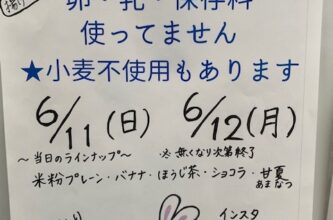 卵・乳・保存料
使ってません
★小麦不使用もあります
6/11(日) 6/12(月)
※無くなり次第終了
～当日のラインナップ～
米粉プレーン・バナナ・ほうじ茶・ショコラ・甘夏
あまなつ
インスタ